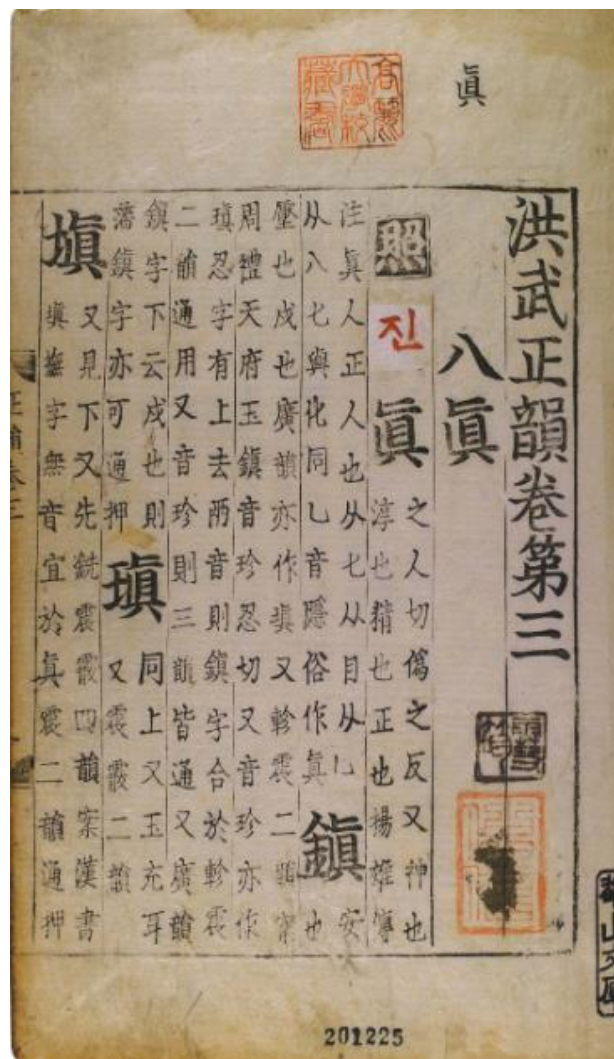 眞
高麗大學校藏書
洪武正韻卷第三
八眞
照
진
眞
之人切僞之反又神也
淳也精也正也楊雄傳
注眞人正人也从七从目从乚
从八七與化同乚音隱俗作真
鎭
安
也
壓也戍也廣韻亦作塡又軫震二韻案
周禮天府玉鎭音珍忍切又音珍亦作
瑱忍字有上去兩音則鎭字合於軫震
二韻通用又音珍則三韻皆通又廣韻
鎭字下云戍也則
藩鎭字亦可通押
瑱
同上又玉充耳
又震霰二韻
塡
又見下又先銑震霰四韻案漢書
塡撫字無音宜於眞震二韻通押
201225